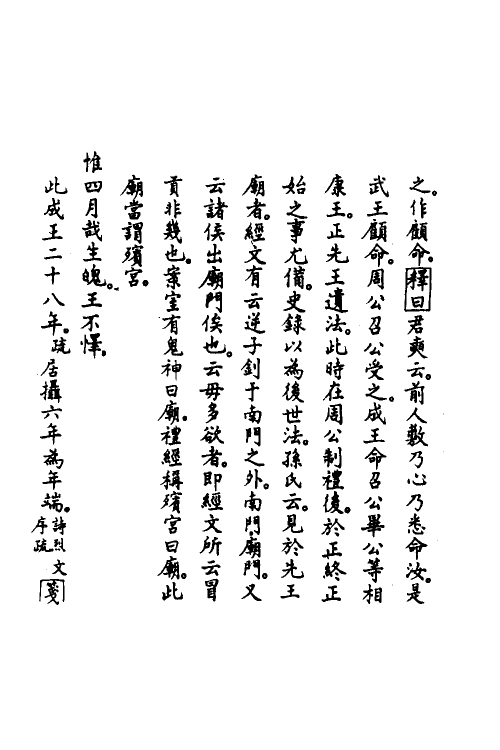 之。作顧命。釋曰君奭云。前人敷乃心乃悉命汝。是
武王顧命。周公召公受之。成王命召公畢公等相
康王。正先王遺法。此時在周公制禮後。於正終正
始之事尤備。史錄以為後世法。孫氏云。見於先王
廟者。經文有云逆子釗于南門之外。南門。廟門。又
云諸侯出廟門俟也。云毋多欲者。即經文所云冒
貢非幾也。案室有鬼神曰廟。禮經稱殯宮曰廟。此
廟當謂殯宮。
惟四月哉生魄。王不懌。
此成王二十八年。疏居攝六年為年端。詩烈文序疏箋